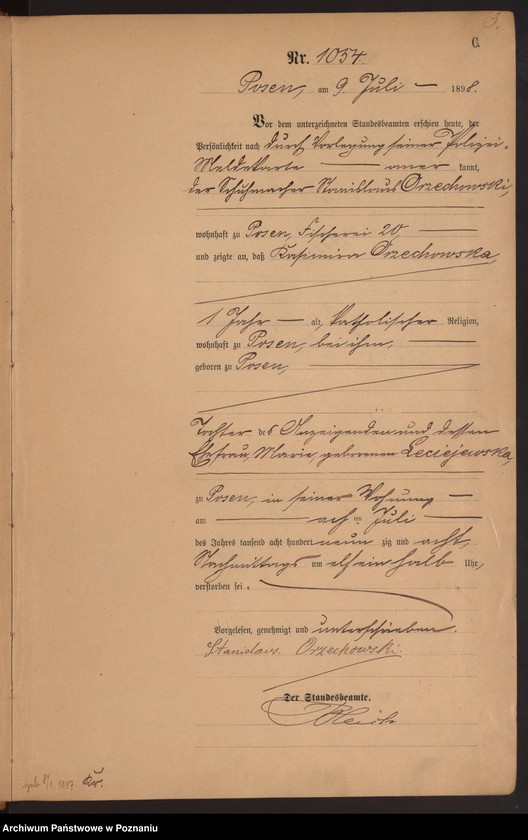 C.
Nr. 1054
Posen, am 9. Juli 1898.
Vor dem unterzeichneten Standesbeamten erschien heute, der
Persönlichkeit nach durch Vorlegung seiner Polizei-
Meldekarte aner kannt,
der Schuhmacher Stanislaus Orzechowski,
wohnhaft zu Posen, Fischerei 20
und zeigte an, daß Kasimira Orzechowska,
1 Jahr alt, katholischer Religion,
wohnhaft zu Posen, bei ihm,
geboren zu Posen,
Tochter des Anzeigenden und dessen
Ehefrau, Marie, geborenen Leciejewska,
zu Posen, in seiner Wohnung
am acht ten Juli
des Jahres tausend acht hundert neun zig und acht,
Nachmittags um elf ein halb Uhr,
verstorben sei.
Vorgelesen, genehmigt und unterschrieben.
Stanislaus Orzechowski.
Der Standesbeamte.
geb. 8/1 1897.
Archiwum Państwowe w Poznaniu